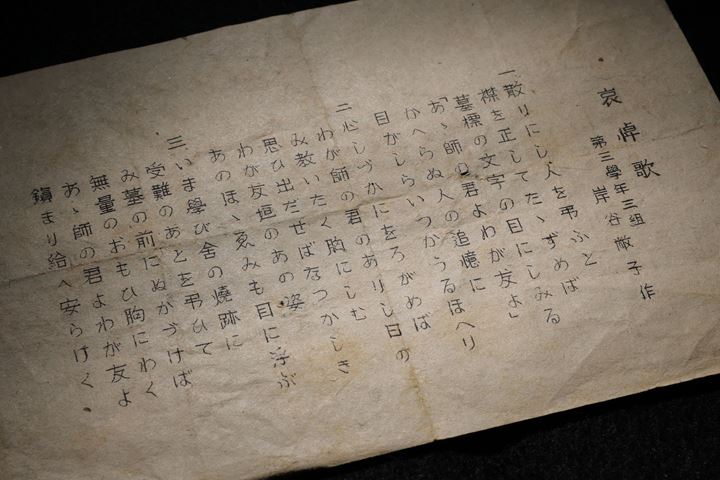 哀悼歌
第三學年三組 岸谷敞子作
一 散りにし人を弔ふと
襟を正してたゝずめば
墓標の文字の目にしみる
「あゝ師の君よわが友よ」
かへらぬ人の追憶に
目がしらいつかうるほへり
二 心しづかにをろがめば
わが師の君のありし日の
み教いたく胸にしむ
思ひ出だせばなつかしき
わが友垣のあの姿
あのほゝゑみも目に浮ぶ
三 いま學び舍の燒跡に
受難のあとを弔ひて
み墓の前にぬかづけば
無量のおもひ胸にわく
あゝ師の君よわが友よ
鎭まり給へ安らけく